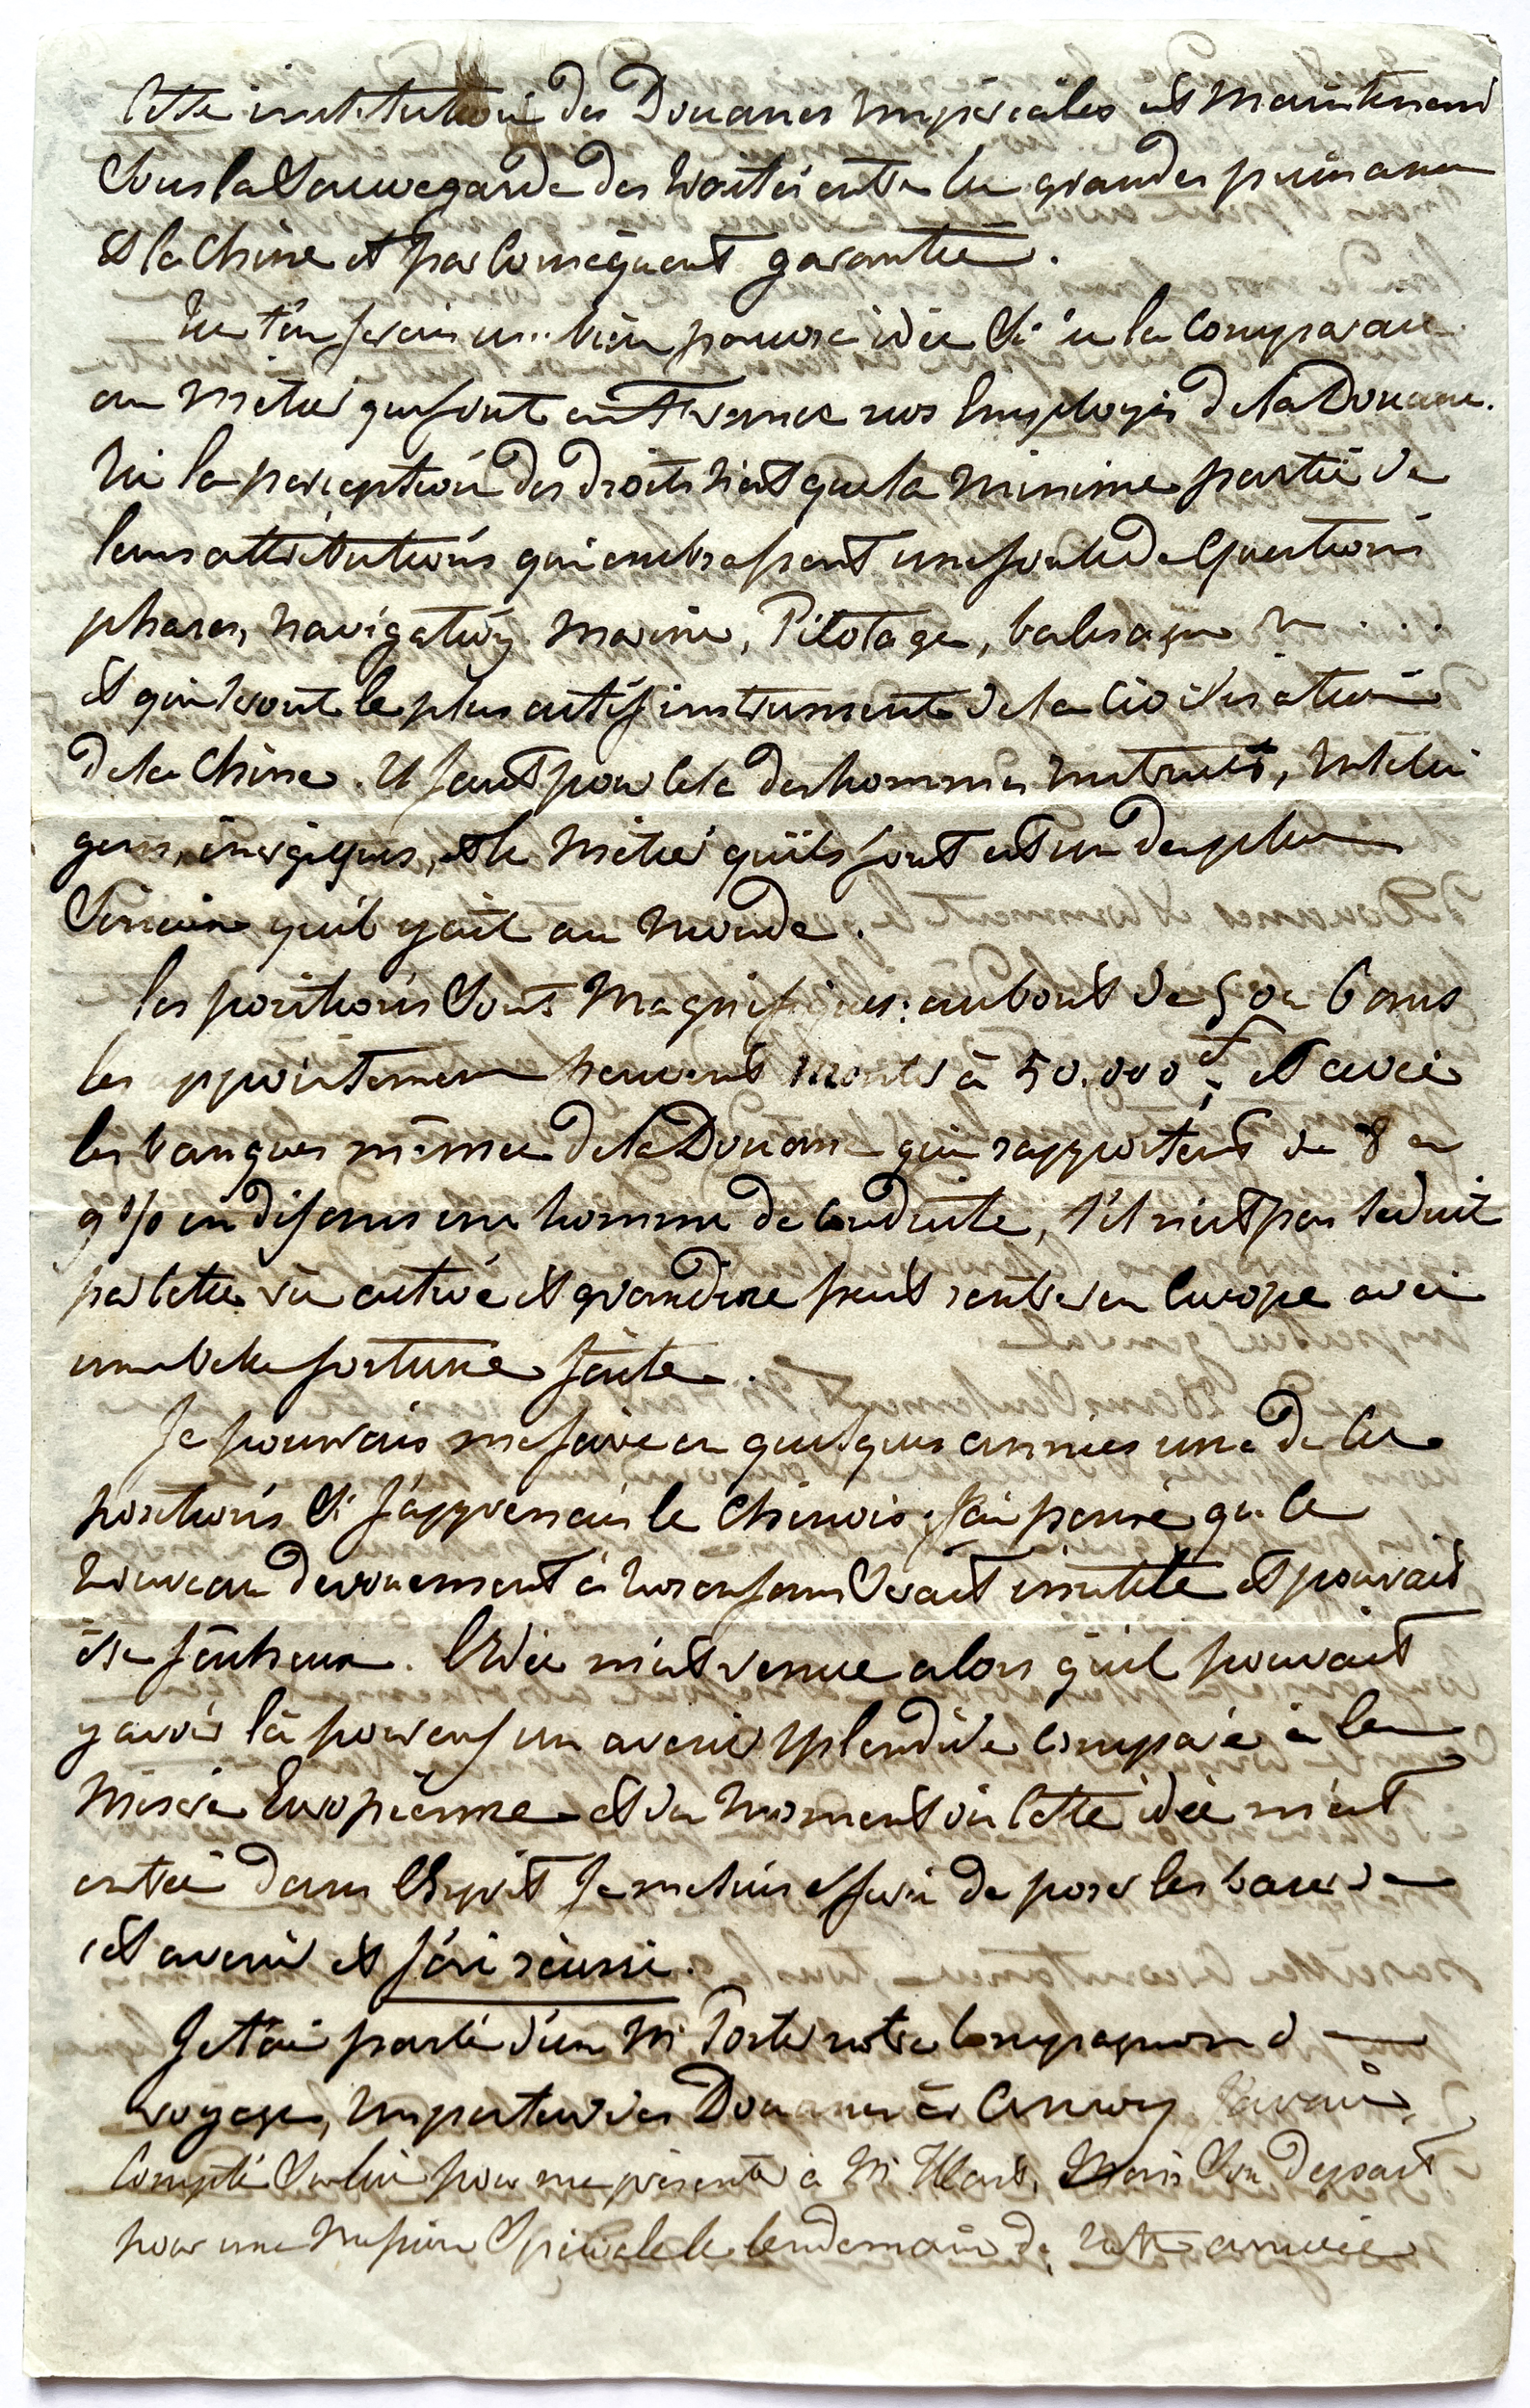 Cette institution des Douanes Impériales est maintenant
sous la sauvegarde des traités entre les grandes puissances
et la Chine et par conséquent garantie.
Tu t'en ferais une bien pauvre idée si tu la comparais
au métier que font en France nos Employés de la Douane.
Ici la perception des droits n'est que la minime partie de
leurs attributions qui embrassent une foule de questions
phares, navigation, marine, Pilotage, balisage &c . . .
et qui seront le plus actif instrument de la civilisation
de la Chine. Il faut pour cela des hommes instruits, intelli
gens, énergiques, et le métier qu'ils font est un des plus
sérieux qu'il y ait au monde.
Les positions sont magnifiques: au bout de 5 ou 6 ans
les appointemens peuvent monter à 50.000 f; et avec
les banques même de la Douane qui rapportent de 8 à
9 % en dix ans un homme de conduite, s'il n'est pas séduit
par cette vie active et grandiose peut rentrer en Europe avec
une belle fortune faite.
Je pouvais me faire en quelques années une de ces
positions si j'apprenais le chinois. J'ai pensé que ce
nouveau dévouement à nos enfans serait inutile et pouvait
être fâcheux. L'idée m'est venue alors qu'il pouvait
y avoir là pour eux un avenir splendide comparé à la
misère Européenne et du moment où cette idée m'est
entrée dans l'Esprit je me suis efforcé de poser les bases de
cet avenir et j'ai réussi.
Je t'ai parlé d'un Mr Porter notre compagnon de
voyage, inspecteur des Douanes à Amoy. J'avais
compté sur lui pour me présenter à Mr Hart, Mais son départ
pour une mission spéciale le lendemain de notre arrivée